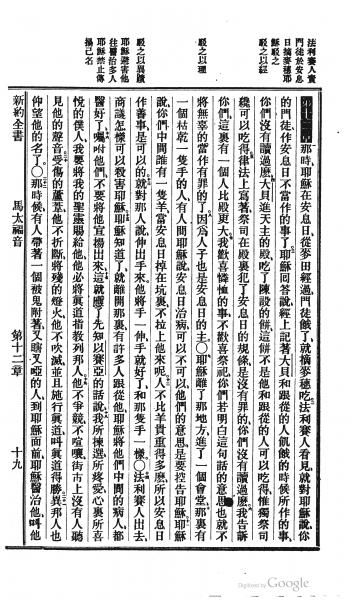 法利賽人責
門徒於安息
日摘麥穗耶
穌駁之
駁之以經
駁之以理
駁之以異蹟
耶穌避害他
往醫治多人
耶穌禁止傳
揚己名
第十二章 那時、耶穌在安息日、從麥田經過、門徒餓了、就摘麥穗吃、法利賽人看見、就對耶穌說、你
的門徒作安息日不當作的事了、耶穌回答說、經上記著和跟從的人飢餓的時候所作的事、
你們沒有讀過麼、進天主的殿、吃了陳設的餅、這餅不是他和跟從的人可以吃得、惟獨祭司
纔可以吃得、律法上寫著、祭司在殿裏犯了安息日的規條、是沒有罪的、你們沒有讀過麼、我告訴
你們、這裏有一個人比殿更大、我歡喜憐恤的事、不歡喜祭祀、你們若明白這句話的意思、也就不
將無辜的當作有罪的了、因爲人子也是安息日的主、○耶穌離了那地方、進了一個會堂、那裏有
一個枯乾一隻手的人、有人問耶穌說、安息日治病、可以不可以、他們的意思、是要控告耶穌、耶穌
說、你們中間誰有一隻羊、當安息日掉在坑裏、不拉上他來呢、人不比羊貴重得多麼、所以安息日
作善事、是可以的、就對那人說、伸出手來、他將手一伸、手就好了、和那隻手一樣、○法利賽人出去、
商議怎樣可以殺害耶穌、耶穌知道了、就離開那裏、有許多人跟從他、耶穌將他們中間的病人、都
醫好了、囑咐他們、不要將他宣揚出來、這就應了先知以賽亞的話、說、我所揀選所疼愛心裏所喜
悅的僕人、我要將我的聖靈賜給他、他必將眞道指教列邦人、他不爭競、不喧嚷、街市上沒有人聽
見他的聲音、受傷的蘆葦、他不折斷、將殘的燈火、他不吹滅、並且施行眞道、叫眞道得勝、異邦人也
仰望他的名了、○那時候有人帶著一個被鬼附著、又瞎、又啞的人、到耶穌面前、耶穌醫治他、叫他
新約全書 馬太福音 第十二章 十九
Digitized by Google